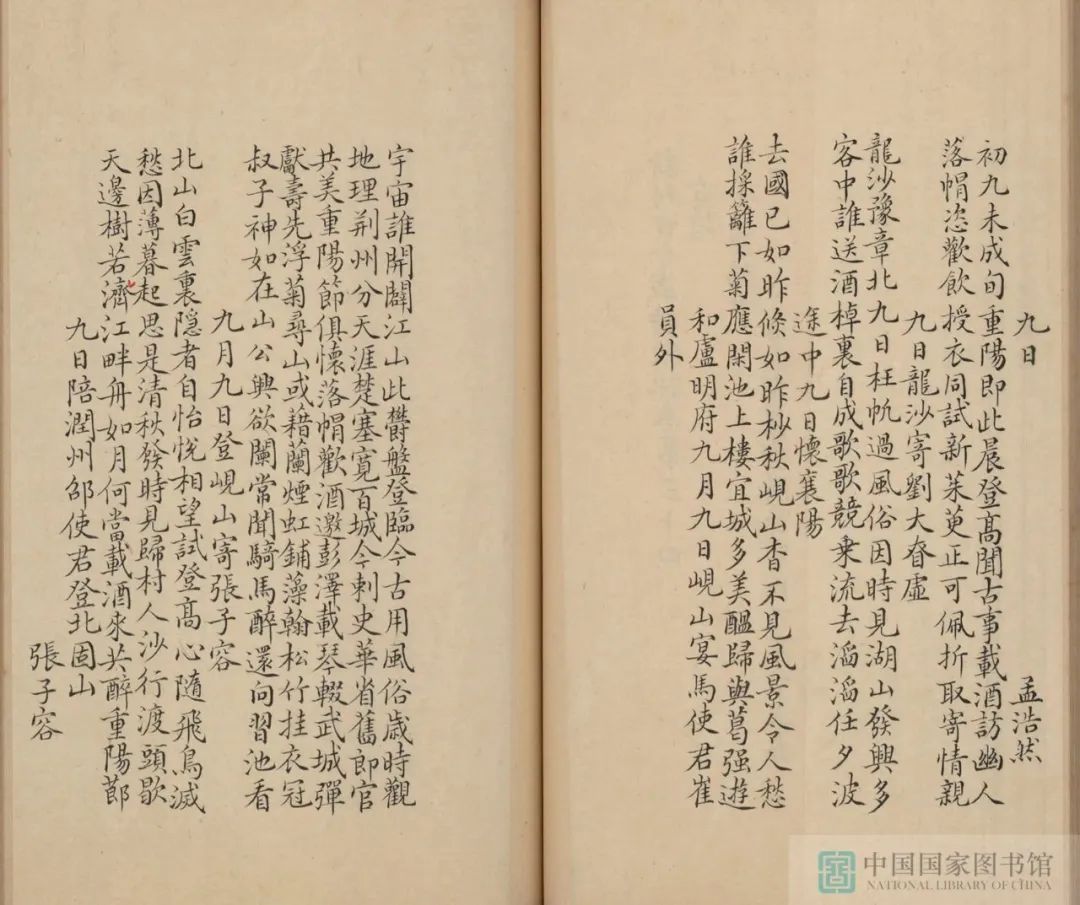 九日
孟浩然
初九未成旬重陽即此晨登髙聞古事載酒訪幽人
落帽恣歡飲授衣同試新茱萸正可佩折取寄情親
九日龍沙寄劉大昚虛
龍沙豫章北九日枉帆過風俗因時見湖山發興多
容中誰送酒棹裏自成歌歌競乗流去滔滔任夕波
途中九日懷襄陽
去國已如昨倏如昨杪秋峴山杳不見風景令人愁
誰採籬下菊應閑池上樓宜城多美醞歸與葛强遊
和盧明府九月九日峴山宴馬使君崔
員外
宇宙誰開闢江山此鬱盤登臨今古用風俗歳時觀
地理荆州分天涯楚塞寛百城今刺史華省舊郎官
共美重陽節俱懷落帽歡酒邀彭澤載琴輟武城彈
獻壽先浮菊尋山或藉蘭煙虹鋪藻翰松竹挂衣冠
叔子神如在山公興欲闌常聞騎馬醉還向習池看
九月九日登峴山寄張子容
北山白雲裏隠者自怡悅相望試登髙心隨飛鳥滅
愁因薄暮起思是清秋發時見歸村人沙行渡頭歇
天邊樹若濟江畔舟如月何當載酒來共醉重陽節
九日陪潤州邵使君登北固山
張子容
中国国家图书馆
NATIONAL LIBRARY OF CHINA